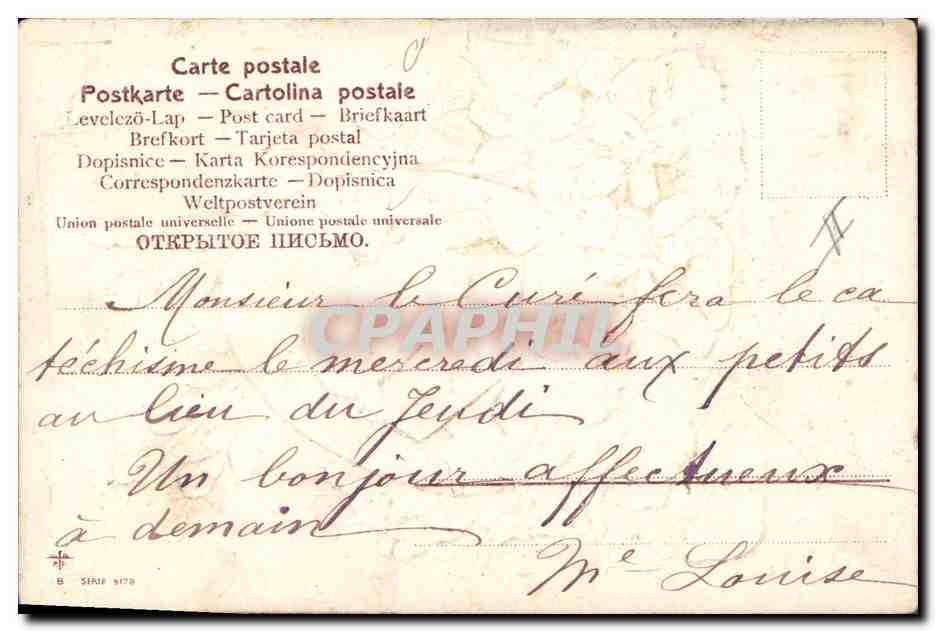 Carte postale
Postkarte — Cartolina postale
Levelezö-Lap — Post card — Briefkaart
Brefkort — Tarjeta postal
Dopisnice — Karta Korespondencyjna
Correspondenzkarte — Dopisnica
Weltpostverein
Union postale universelle — Unione postale universale
ОТКРЫТОЕ ПИСЬМО.
Monsieur le Curé fera le ca
téchisme le mercredi aux petits
au lieu du Jeudi
CPAPHIL
Un bonjour affectueux
à demain
Me Louise
B SERIE 9179